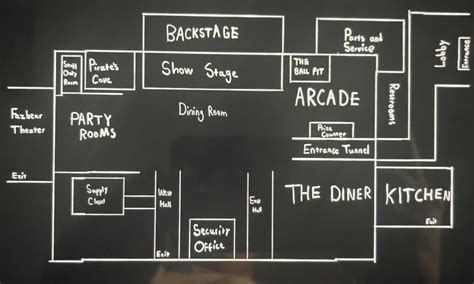 BACKSTAGE
Parts and
Service
Lobby
Entrance
Staff
Only
Room
Pirate's
Cove
Show Stage
THE
BALL PIT
Restrooms
Fazbear
Theater
PARTY
ROOMS
Dining Room
ARCADE
Prize
Counter
Entrance Tunnel
Exit
Supply
Closet
West
Hall
East
Hall
THE DINER
KITCHEN
Security
Office
Exit
Exit